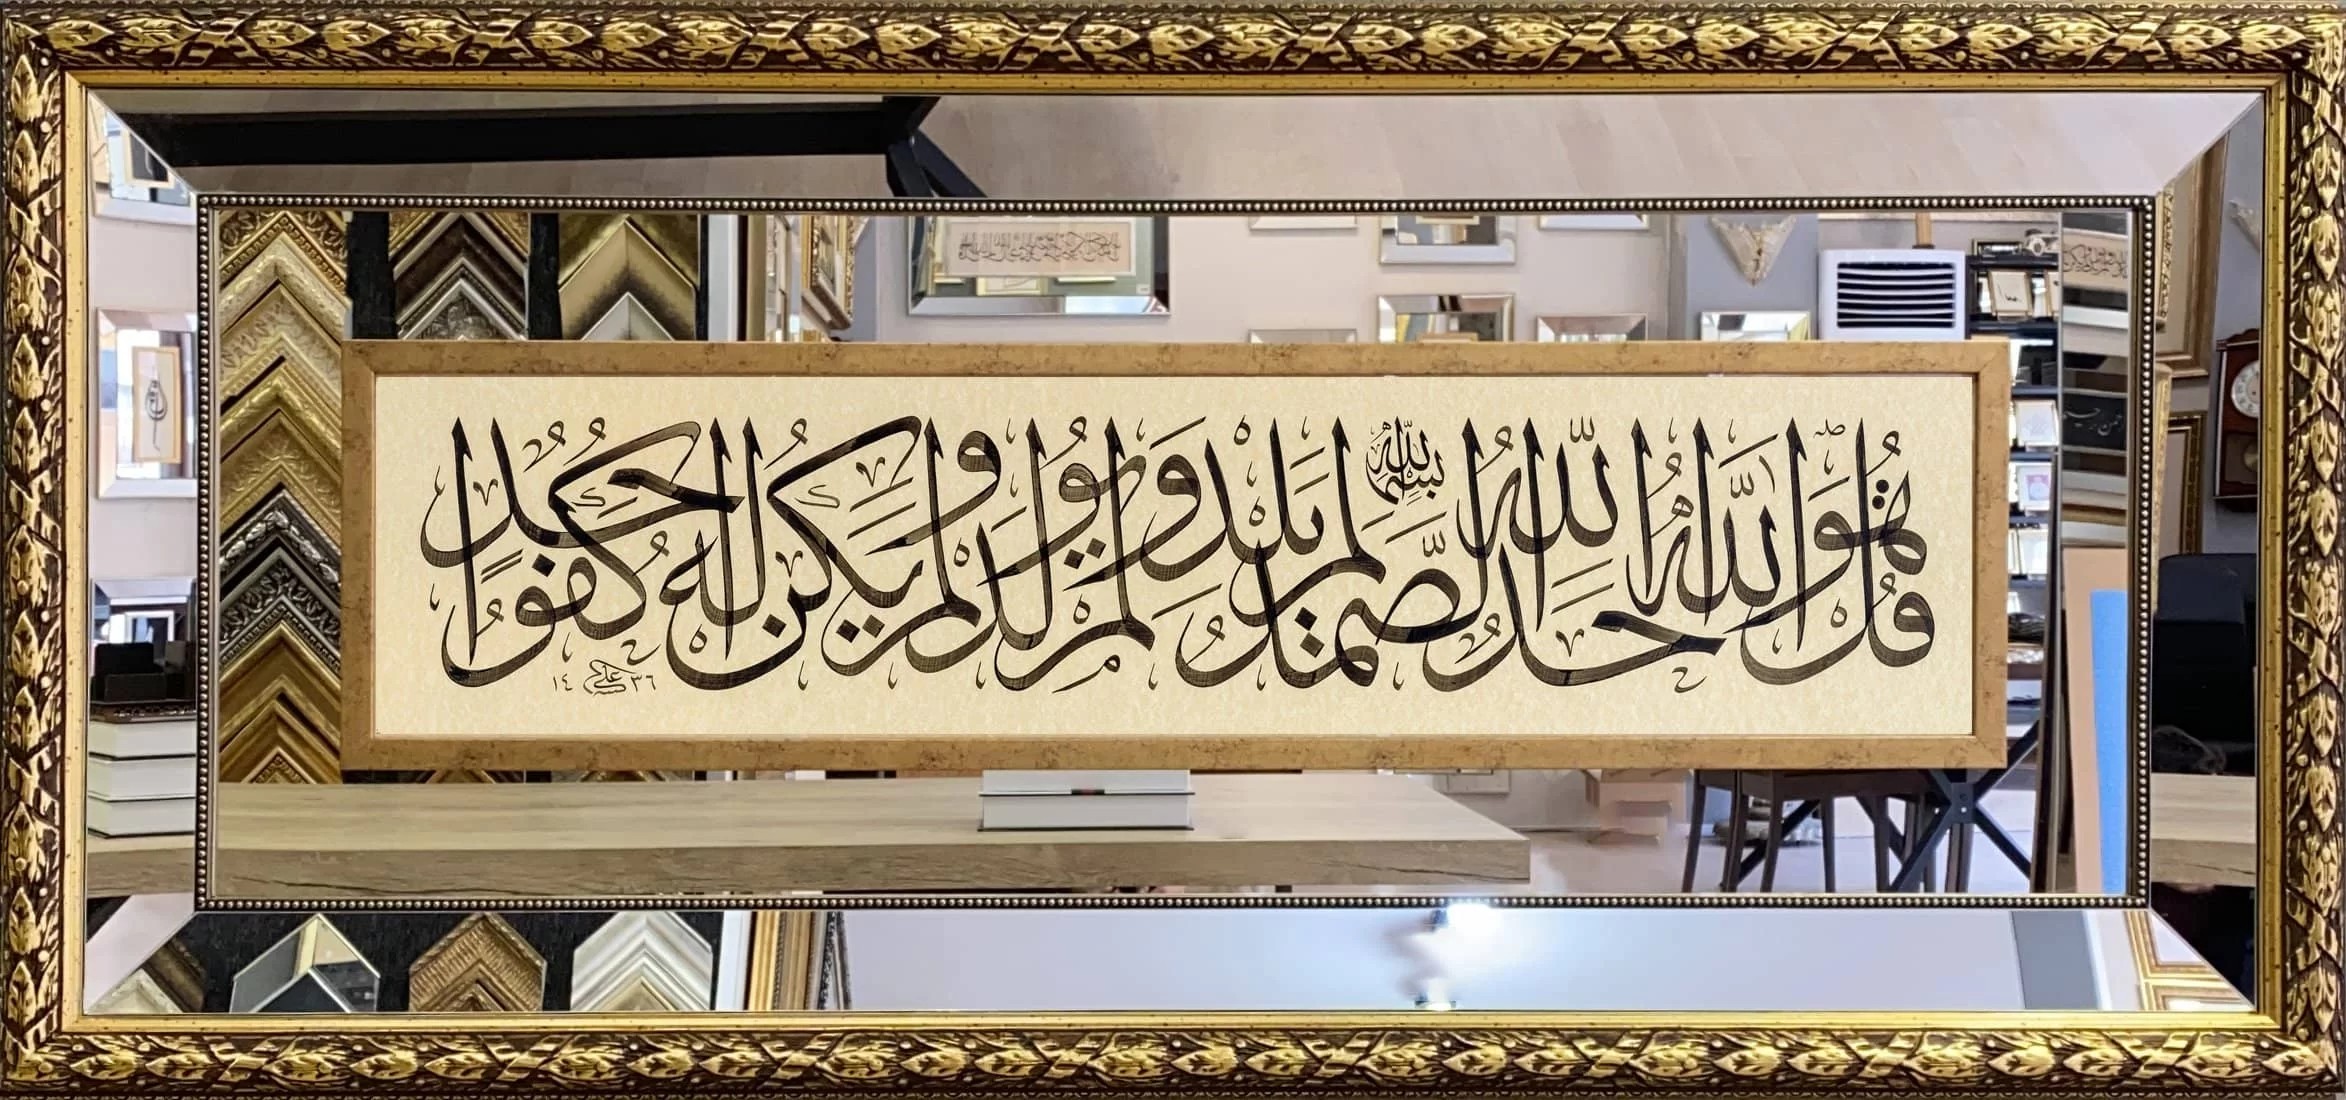 بسم الله
قل هو الله احد الله الصمد لم يلد ولم يولد ولم يكن له كفوا احد
علي ١٤٣٦